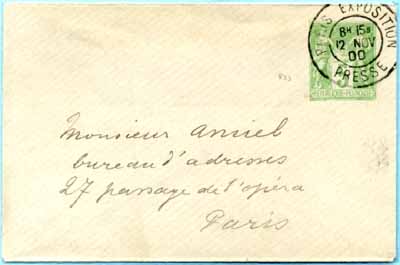 PARIS EXPOSITION
8H 15S
12 NOV
00
PRESSE
5
Monsieur Amiel
bureau d'adresses
27 passage de l'opéra
Paris